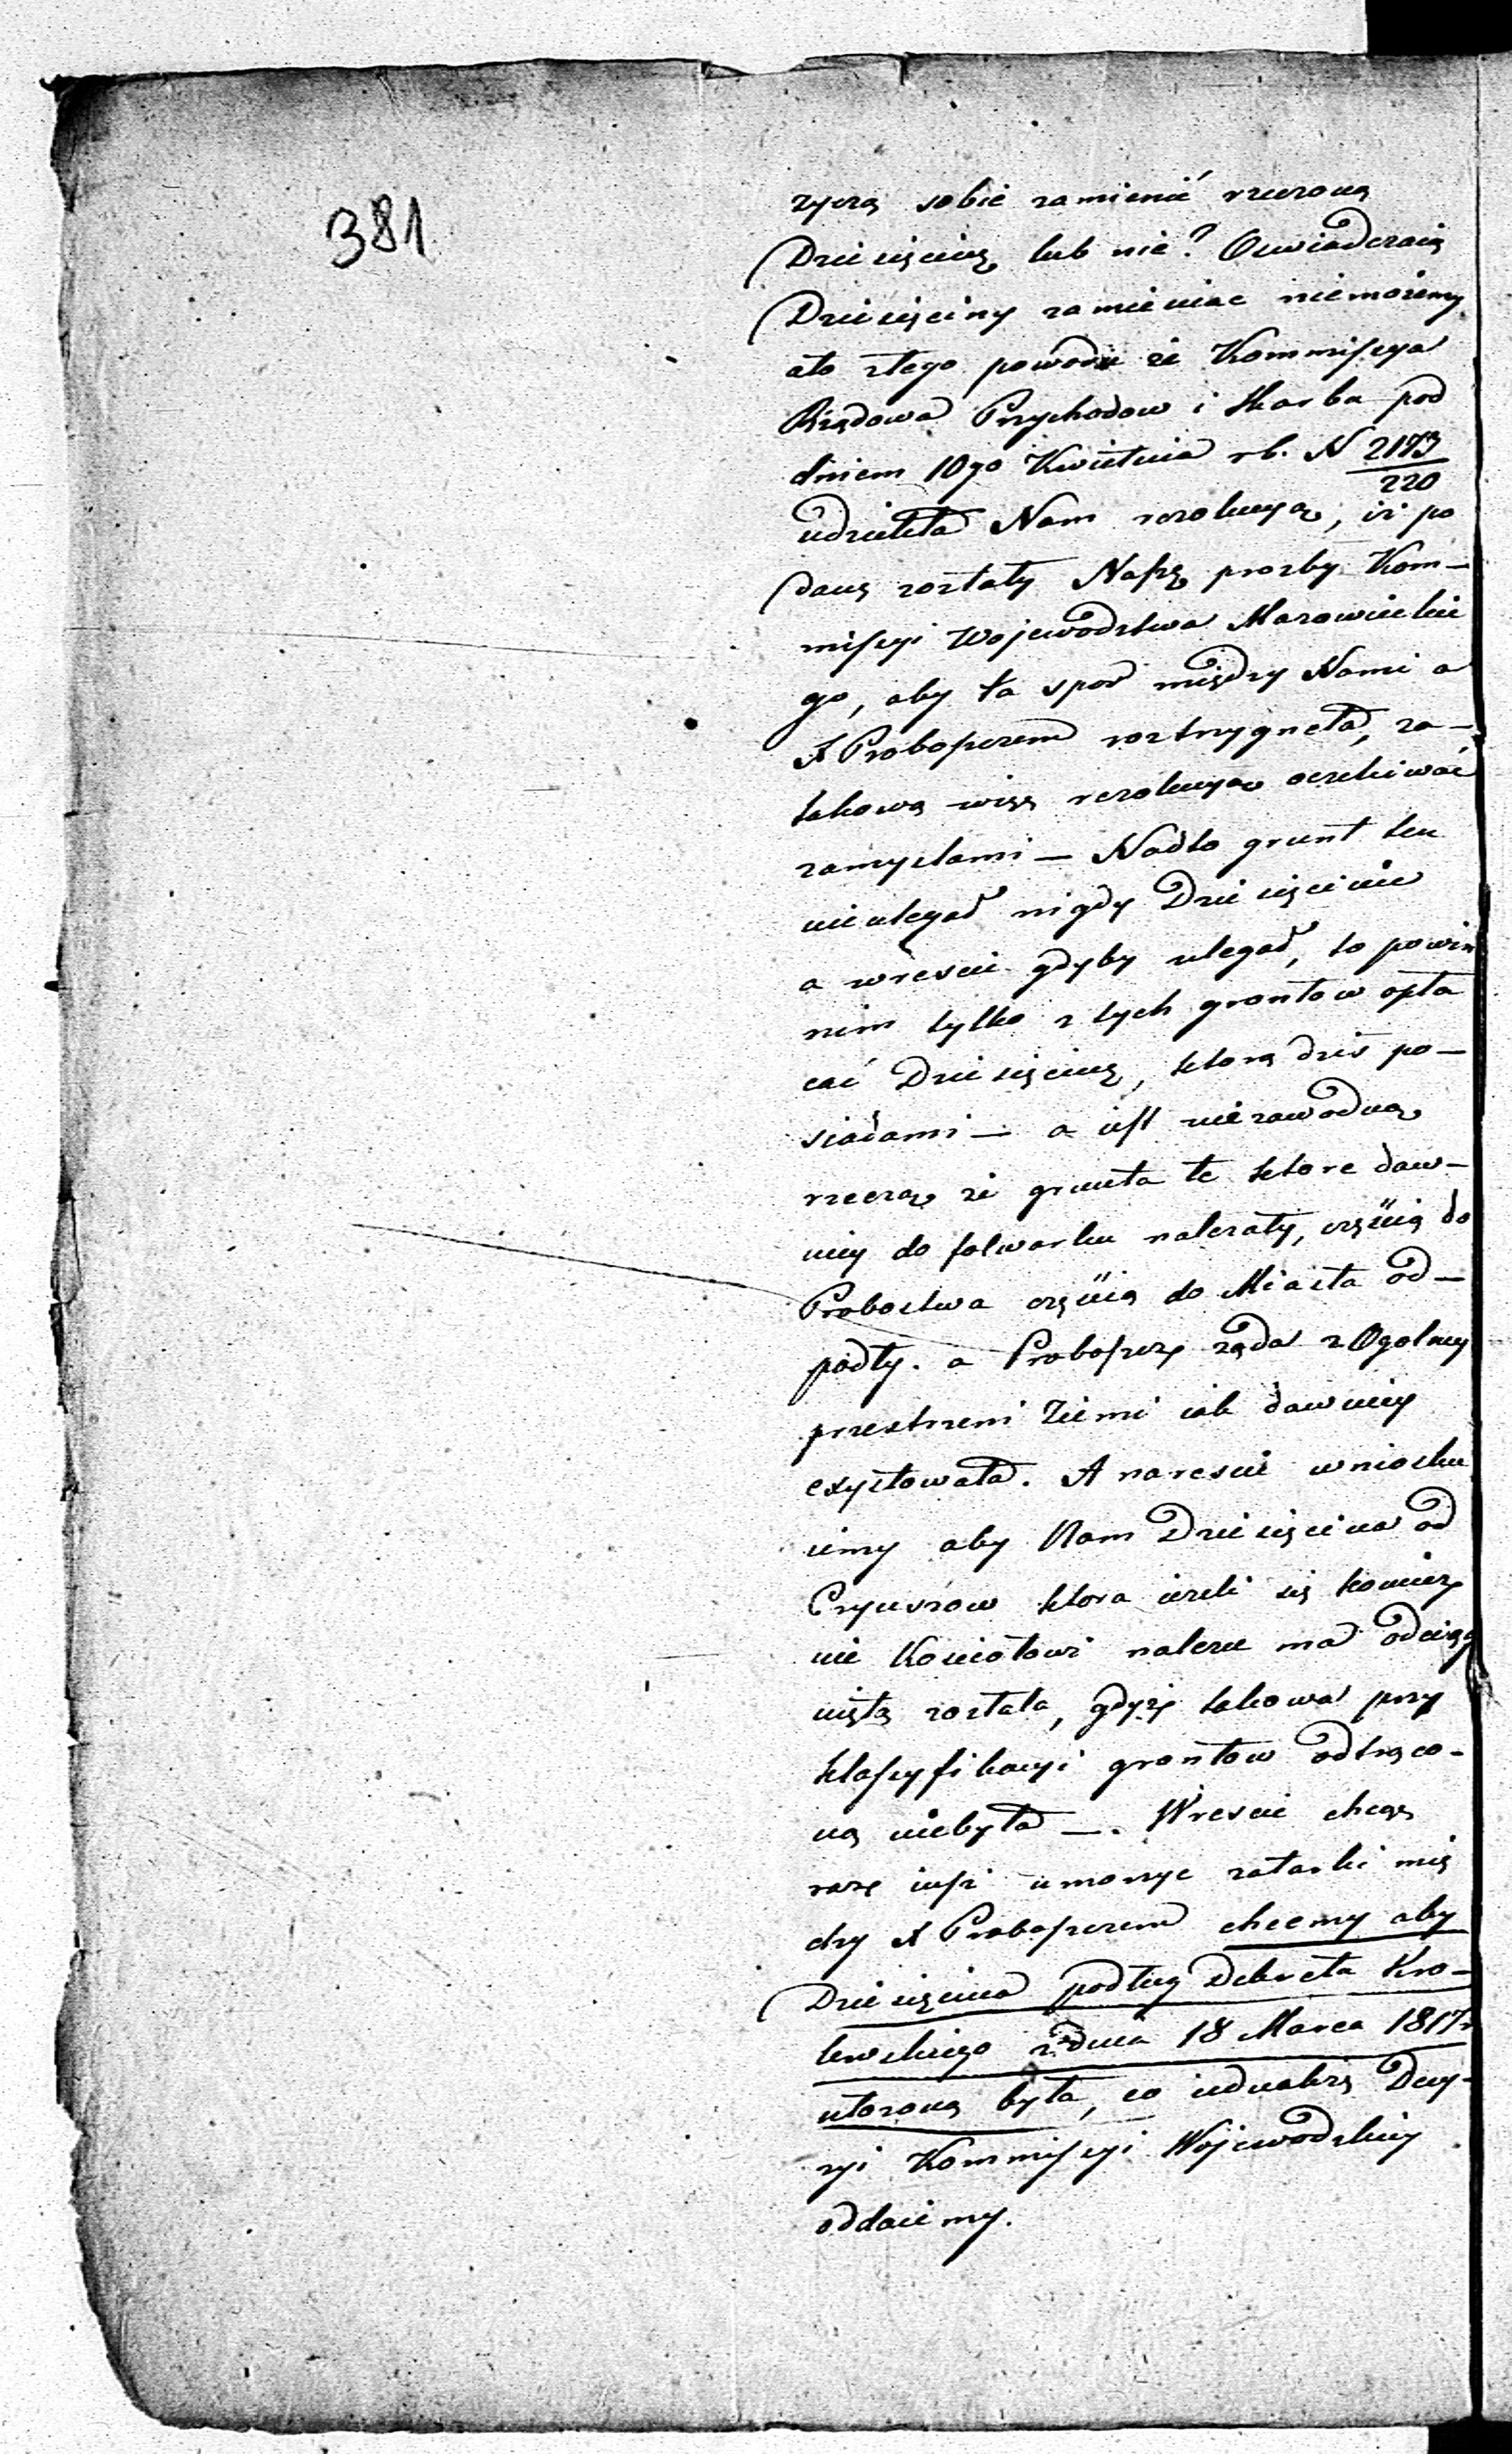 381
zyczą sobie zamienić rzeczoną
Dziesięcinę lub nie? Oswiadczaią
Dziesięciny zamieniac niemożemy
ato ztego powodu że Kommissya
Rządowa Przychodow i Skarbu pod
dniem 10go Kwietnia rb. N 2173/220
udzieliła Nam rezolucyą, iż po
dane zostały Naszę prozby Kom–
missyi Wojewodztwa Mazowieckie
go, aby ta spor między Nami a
X Proboszczem roztrzygneła, za–
takową więc rezolucyą oczekiwać
zamyslami — Nadto grunt ten
nieulegał nigdy Dziesięcinie
a wrescie gdyby ulegał, to powin
nim tylko z tych grontow opła
cać Dziesięcinę, ktorę dziś po–
siadami — a iest niezawodną
rzeczą że grunta te ktore daw–
niey do folwarku należały, częścią do
Probostwa częścią do Miasta od–
padły. a Proboszcz ząda z Ogolney
przestrzeni Ziemi iak dawniey
exystowała. A narescie wniosku
iemy aby Nam Dziesięcina od
Czynszow ktora ieżeli się koniecz
nie Kosciołowi należeć ma odciąg
niętą została, gdyż takowa przy
klassyfikacyi grontow odtrąco–
ną niebyła —. Wrescie chcąc
raz iusz umorzyc zatarki mię
dzy X Proboszczem chcemy aby
Dziesięcina podług Dekretu Kro–
lewskiego z dnia 18 Marca 1817r
ułożoną była, co iednakże Decy–
zyi Kommissyi Wojewodzkiey
oddaiemy.